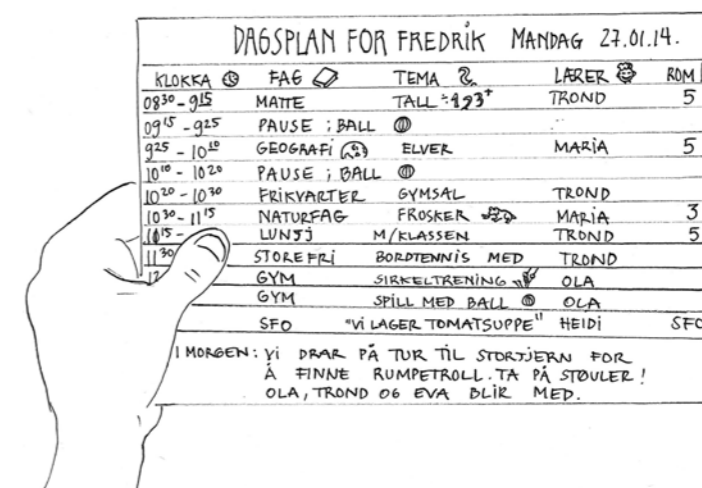 DAGSPLAN FOR FREDRIK MANDAG 27.01.14.
KLOKKA FAG TEMA LÆRER ROM
08³⁰ - 9¹⁵ MATTE TALL ÷ 123⁺ TROND 5
09¹⁵ - 9²⁵ PAUSE ; BALL
9²⁵ - 10¹⁰ GEOGRAFI ELVER MARIA 5
10¹⁰ - 10²⁰ PAUSE ; BALL
10²⁰ - 10³⁰ FRIKVARTER GYMSAL TROND
10³⁰ - 11¹⁵ NATURFAG FROSKER MARIA 3
11¹⁵ - LUNSJ M/KLASSEN TROND 5
11³⁰ STOREFRI BORDTENNIS MED TROND
12 GYM SIRKELTRENING OLA
GYM SPILL MED BALL OLA
SFO "VI LAGER TOMATSUPPE" HEIDI SFO
I MORGEN: VI DRAR PÅ TUR TIL STORTJERN FOR
Å FINNE RUMPETROLL. TA PÅ STØVLER!
OLA, TROND OG EVA BLIR MED.